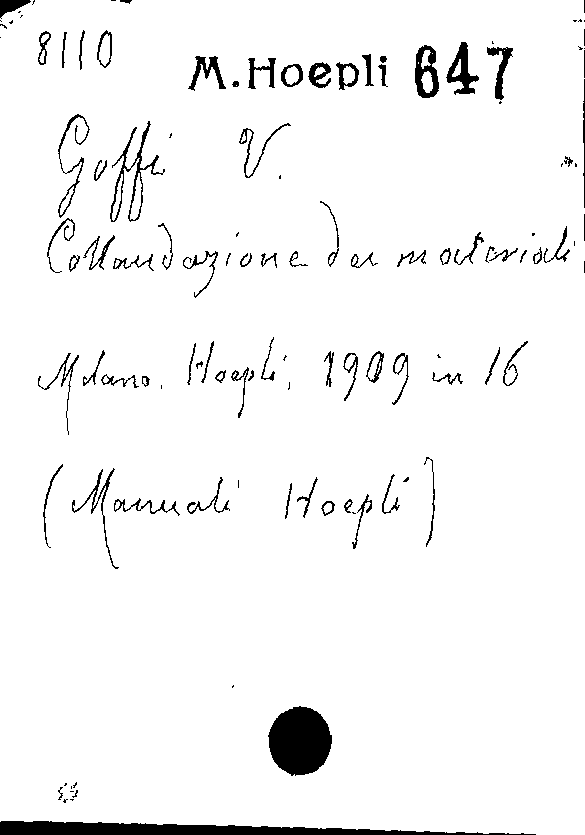 8110
M. Hoepli 647
Goffi V.
Collaudazione dei materiali
Milano. Hoepli. 1909 in 16
(Manuali Hoepli)